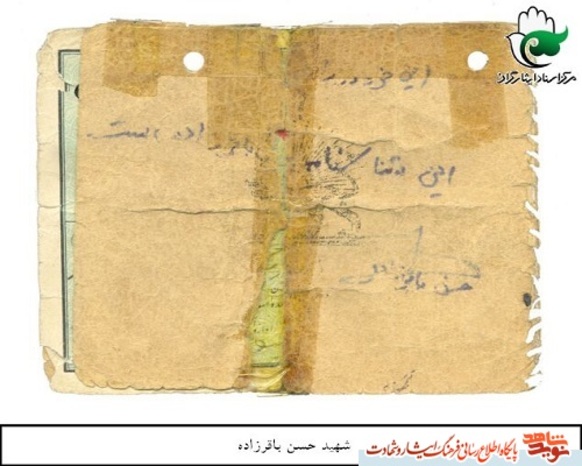 مرکز اسناد ایثارگران
این
این شناسنامه باقرزاده است
حسن باقرزاده
شهید حسن باقرزاده
نوید شاهد
پایگاه اطلاع رسانی فرهنگ ایثار و شهادت